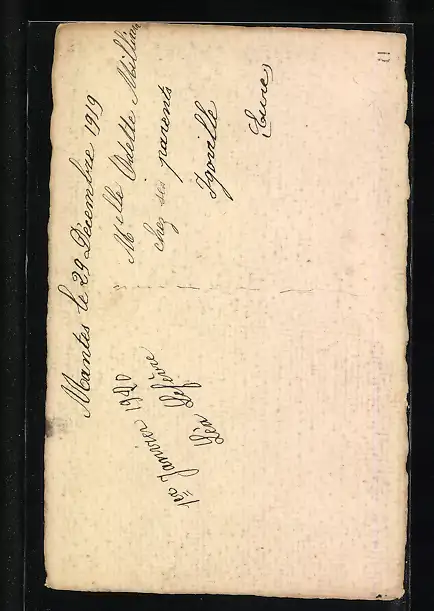 Mantes le 29 Décembre 1919
1er Janvier 1920
Léa Lefèvre
Melle Odette
chez ses parents
Igoville
(Eure)